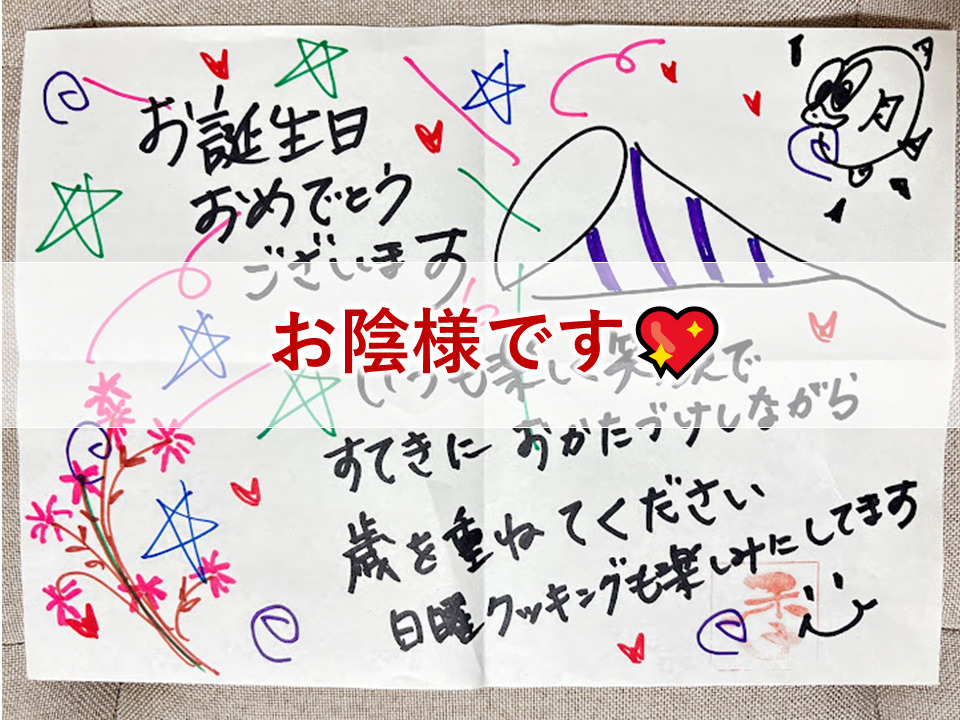 お誕生日
おめでとう
ございます
お陰様です
いつも楽しく笑んで
すてきに おかたづけしながら
歳を重ねてください
日曜クッキングも楽しみにしてます